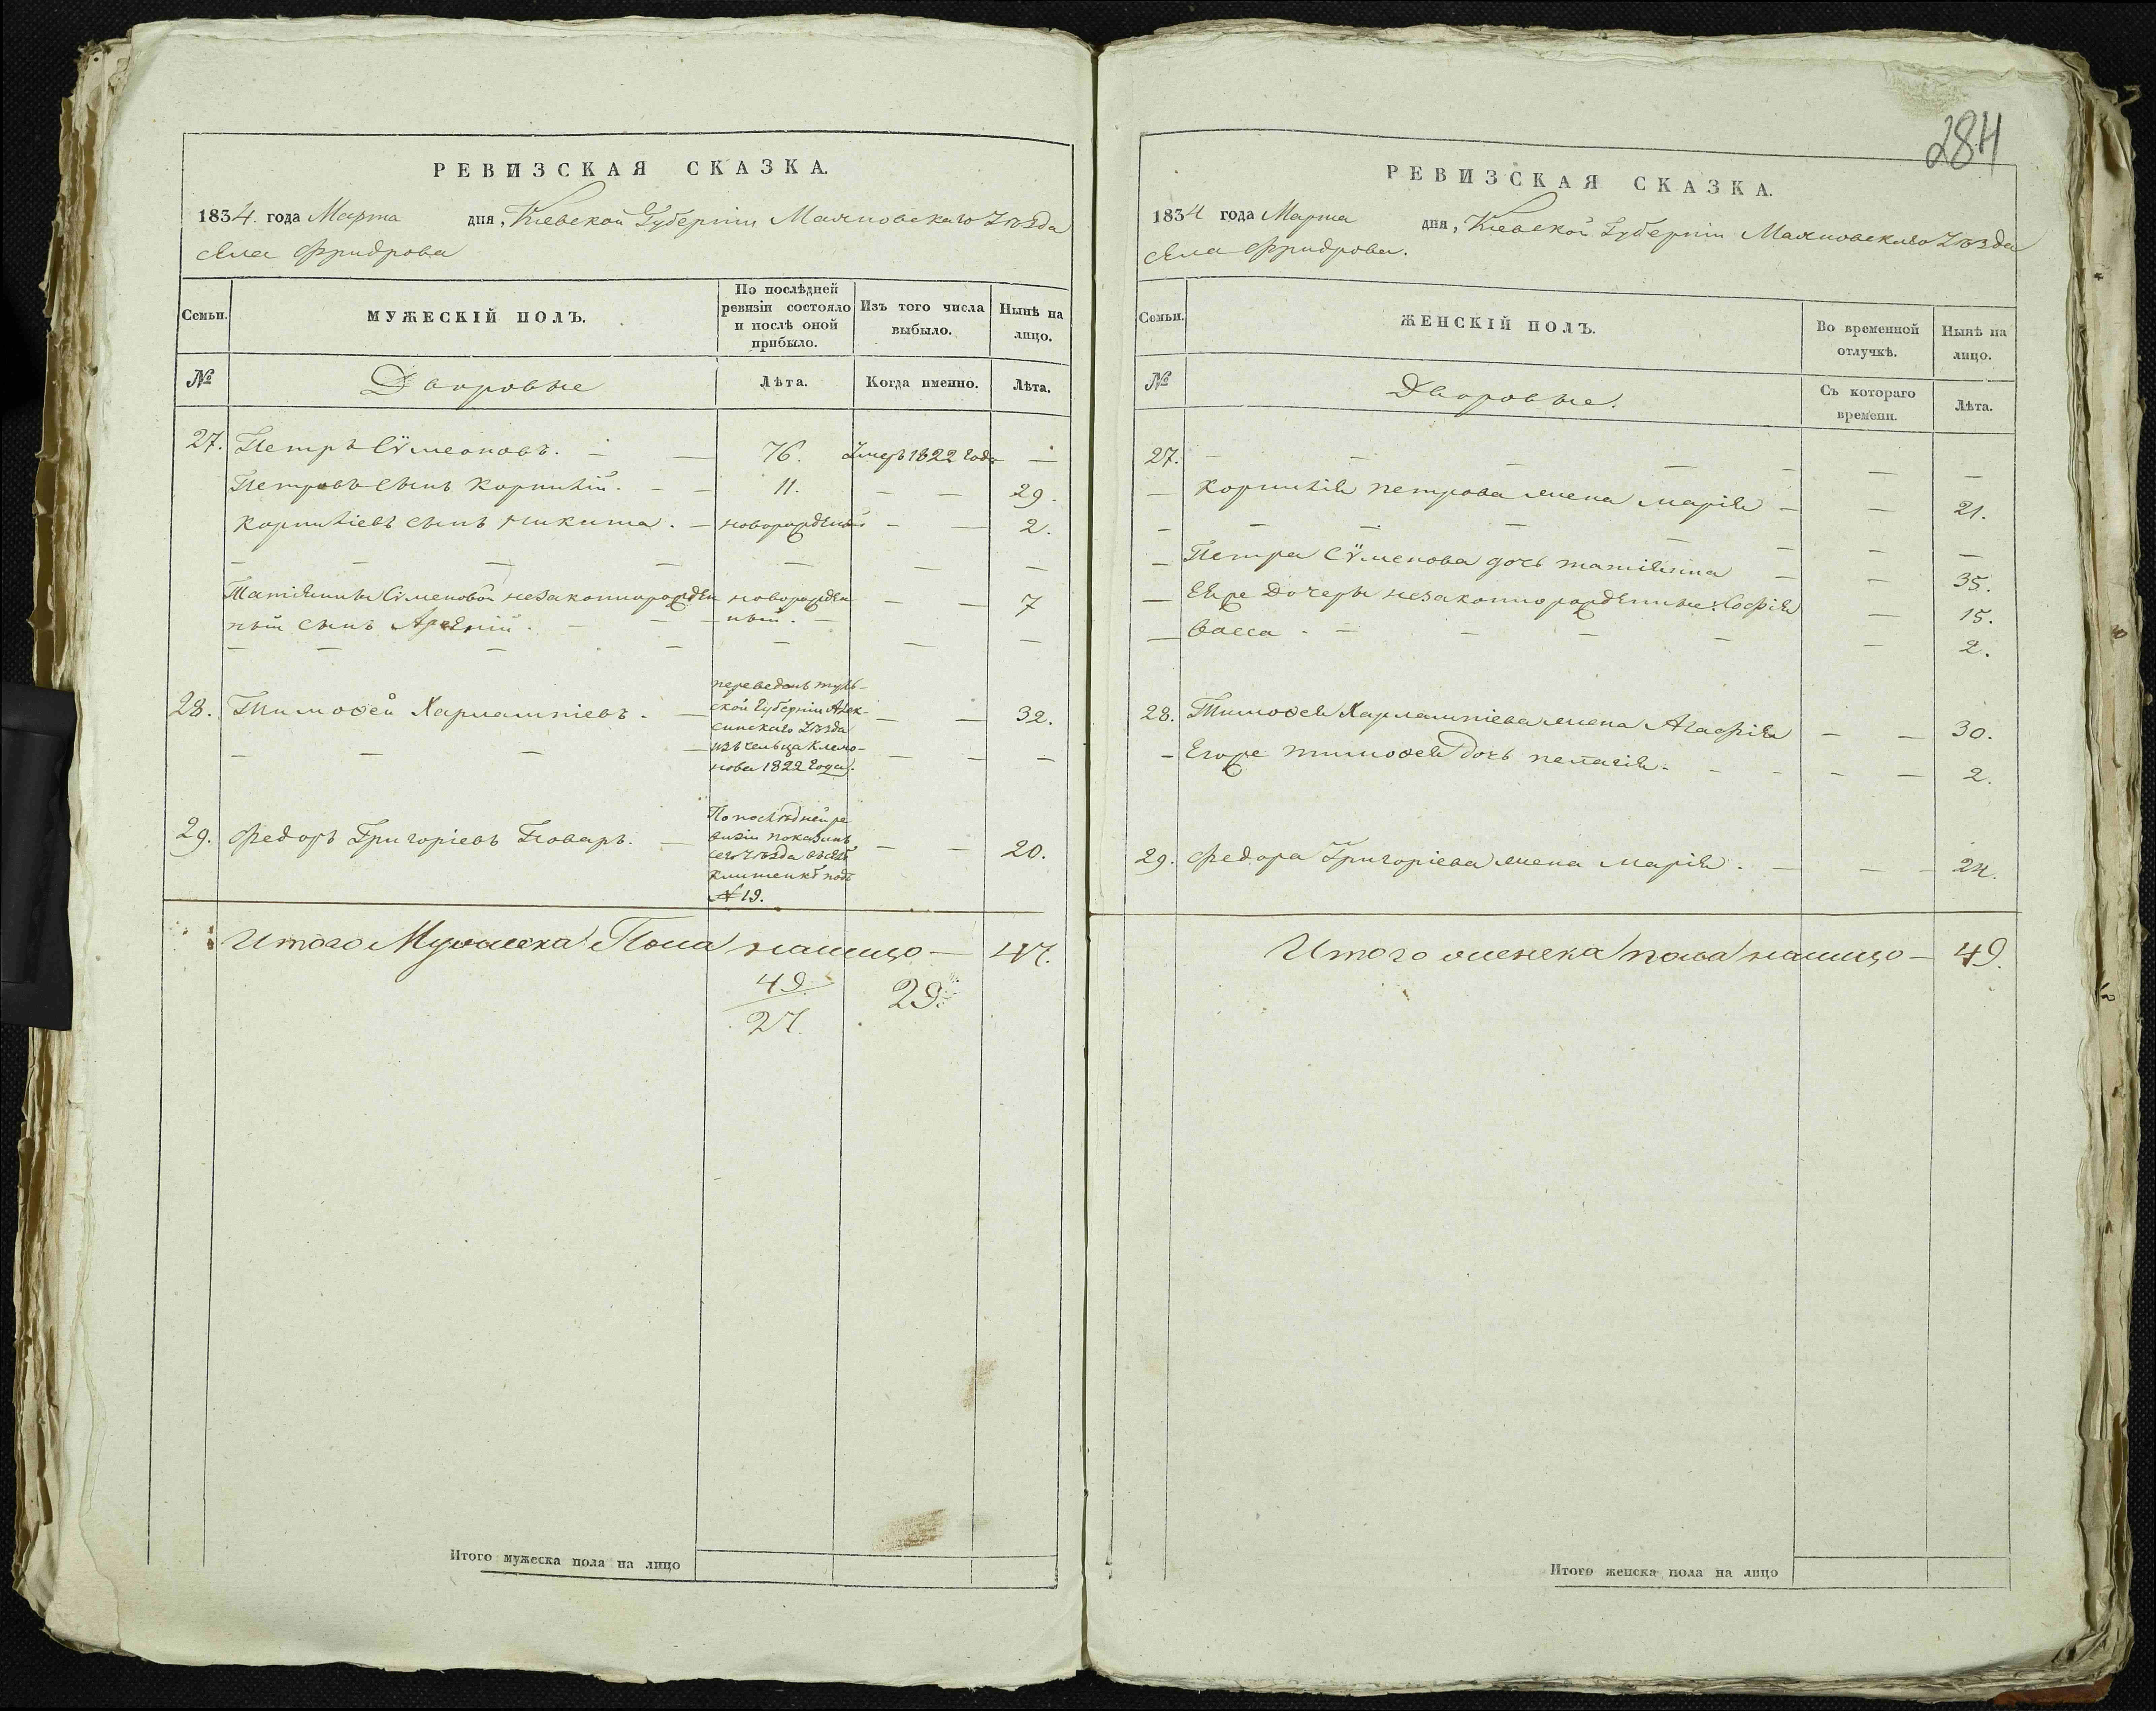 РЕВИЗСКАЯ СКАЗКА.
1834. года Марта дня, Кіевской Губерніи Махновскаго Уѣзда
села Фридрова
Семьи.
МУЖЕСКІЙ ПОЛЪ.
По послѣдней
ревизіи состояло
и послѣ оной
прибыло.
Изъ того числа
выбыло.
Нынѣ на
лицо.
№
Дворовые
Лѣта.
Когда именно.
Лѣта.
27. Петръ Сѵмеоновъ. — 76. Умеръ 1822 года —
Петровъ сынъ Корнилій. — — 11. — — 29.
Корниліевъ сынъ Никита. — новорожденый — — 2.
— — — — — — —
Татіянны Сѵменовой незаконнорожден новорожден — — 7
ный сынъ — — ный. —
— — — — — — —
28. Тимоѳей Харлампіевъ. — — — 32.
переведенъ туль-
ской Губерніи Алек-
синскаго Уѣзда
изъ сельца Климо-
нова 1822 года.
— — — — — — —
29. Федоръ Григоріевъ Поваръ. — — — 20.
По послѣдней ре
визіи показанъ
сего Уѣзда въ селѣ
подъ
№ 19.
Итого Мужеска Пола налицо — 47.
49. 29.
27.
Итого мужеска пола на лицо
284
РЕВИЗСКАЯ СКАЗКА.
1834 года Марта дня, Кіевской Губерніи Махновскаго Уѣзда
села Фридрова.
Семьи.
ЖЕНСКІЙ ПОЛЪ.
Во временной
отлучкѣ.
Нынѣ на
лицо.
№
Дворовые.
Съ котораго
времени.
Лѣта.
27. — — — — — — —
— Корнилія Петрова жена Марія — — 21.
— — — — — — — —
— Петра Сѵменова дочь Татіянна — — 35.
— Еяже дочеры незаконнорожденные: Софія — 15.
— Васса. — — — — — 2.
28. Тимоѳея Харлампіева жена Агафія — — 30.
— Егоже Тимоѳея дочь Пелагія. — — — — 2.
29. Федора Григоріева жена Марія. — — — 24.
Итого женска пола налицо — 49.
Итого женска пола на лицо